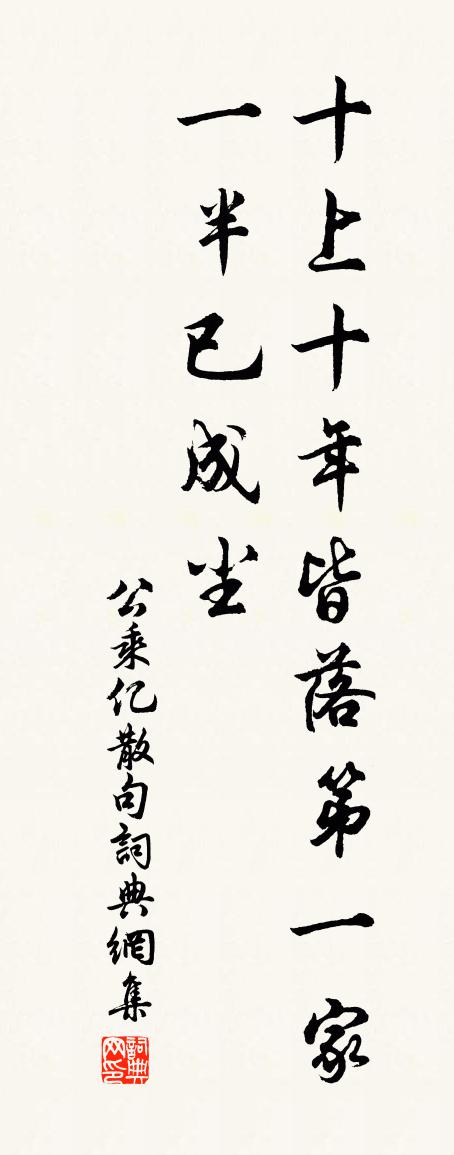 十上十年皆落第一家
一半已成尘
公乘亿散句詞典網集
詞典
网印